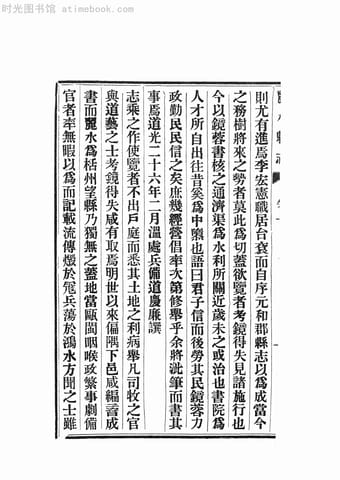 时光图书馆 - atimebook.com
則尤有進焉李宏憲職居台袞而自序元和郡縣志以為成當今
之務樹將來之勢者莫此為切蓋欲覽者考鏡得失見諸施行也
今以鏡蓉書核之通濟渠為水利所關近歲未之或治也書院為
人才所自出往昔奚為中隳也語曰君子信而後勞其民鏡蓉力
政勤民民信之矣庶幾經營倡率次第修舉乎余將泚筆而書其
事焉道光二十六年二月溫處兵備道慶廉譔
志乘之作使覽者不出戶庭而悉其土地之利病舉凡司牧之官
與道藝之士考鏡得失咸有取焉明世以來偏隅下邑咸編言成
書而麗水為栝州望縣乃獨無之蓋地當甌閩咽喉政繁事劇備
官者率無暇以為而記載流傳燬於冠兵蕩於鴻水方聞之士雖
时光图书馆 - atimebook.com